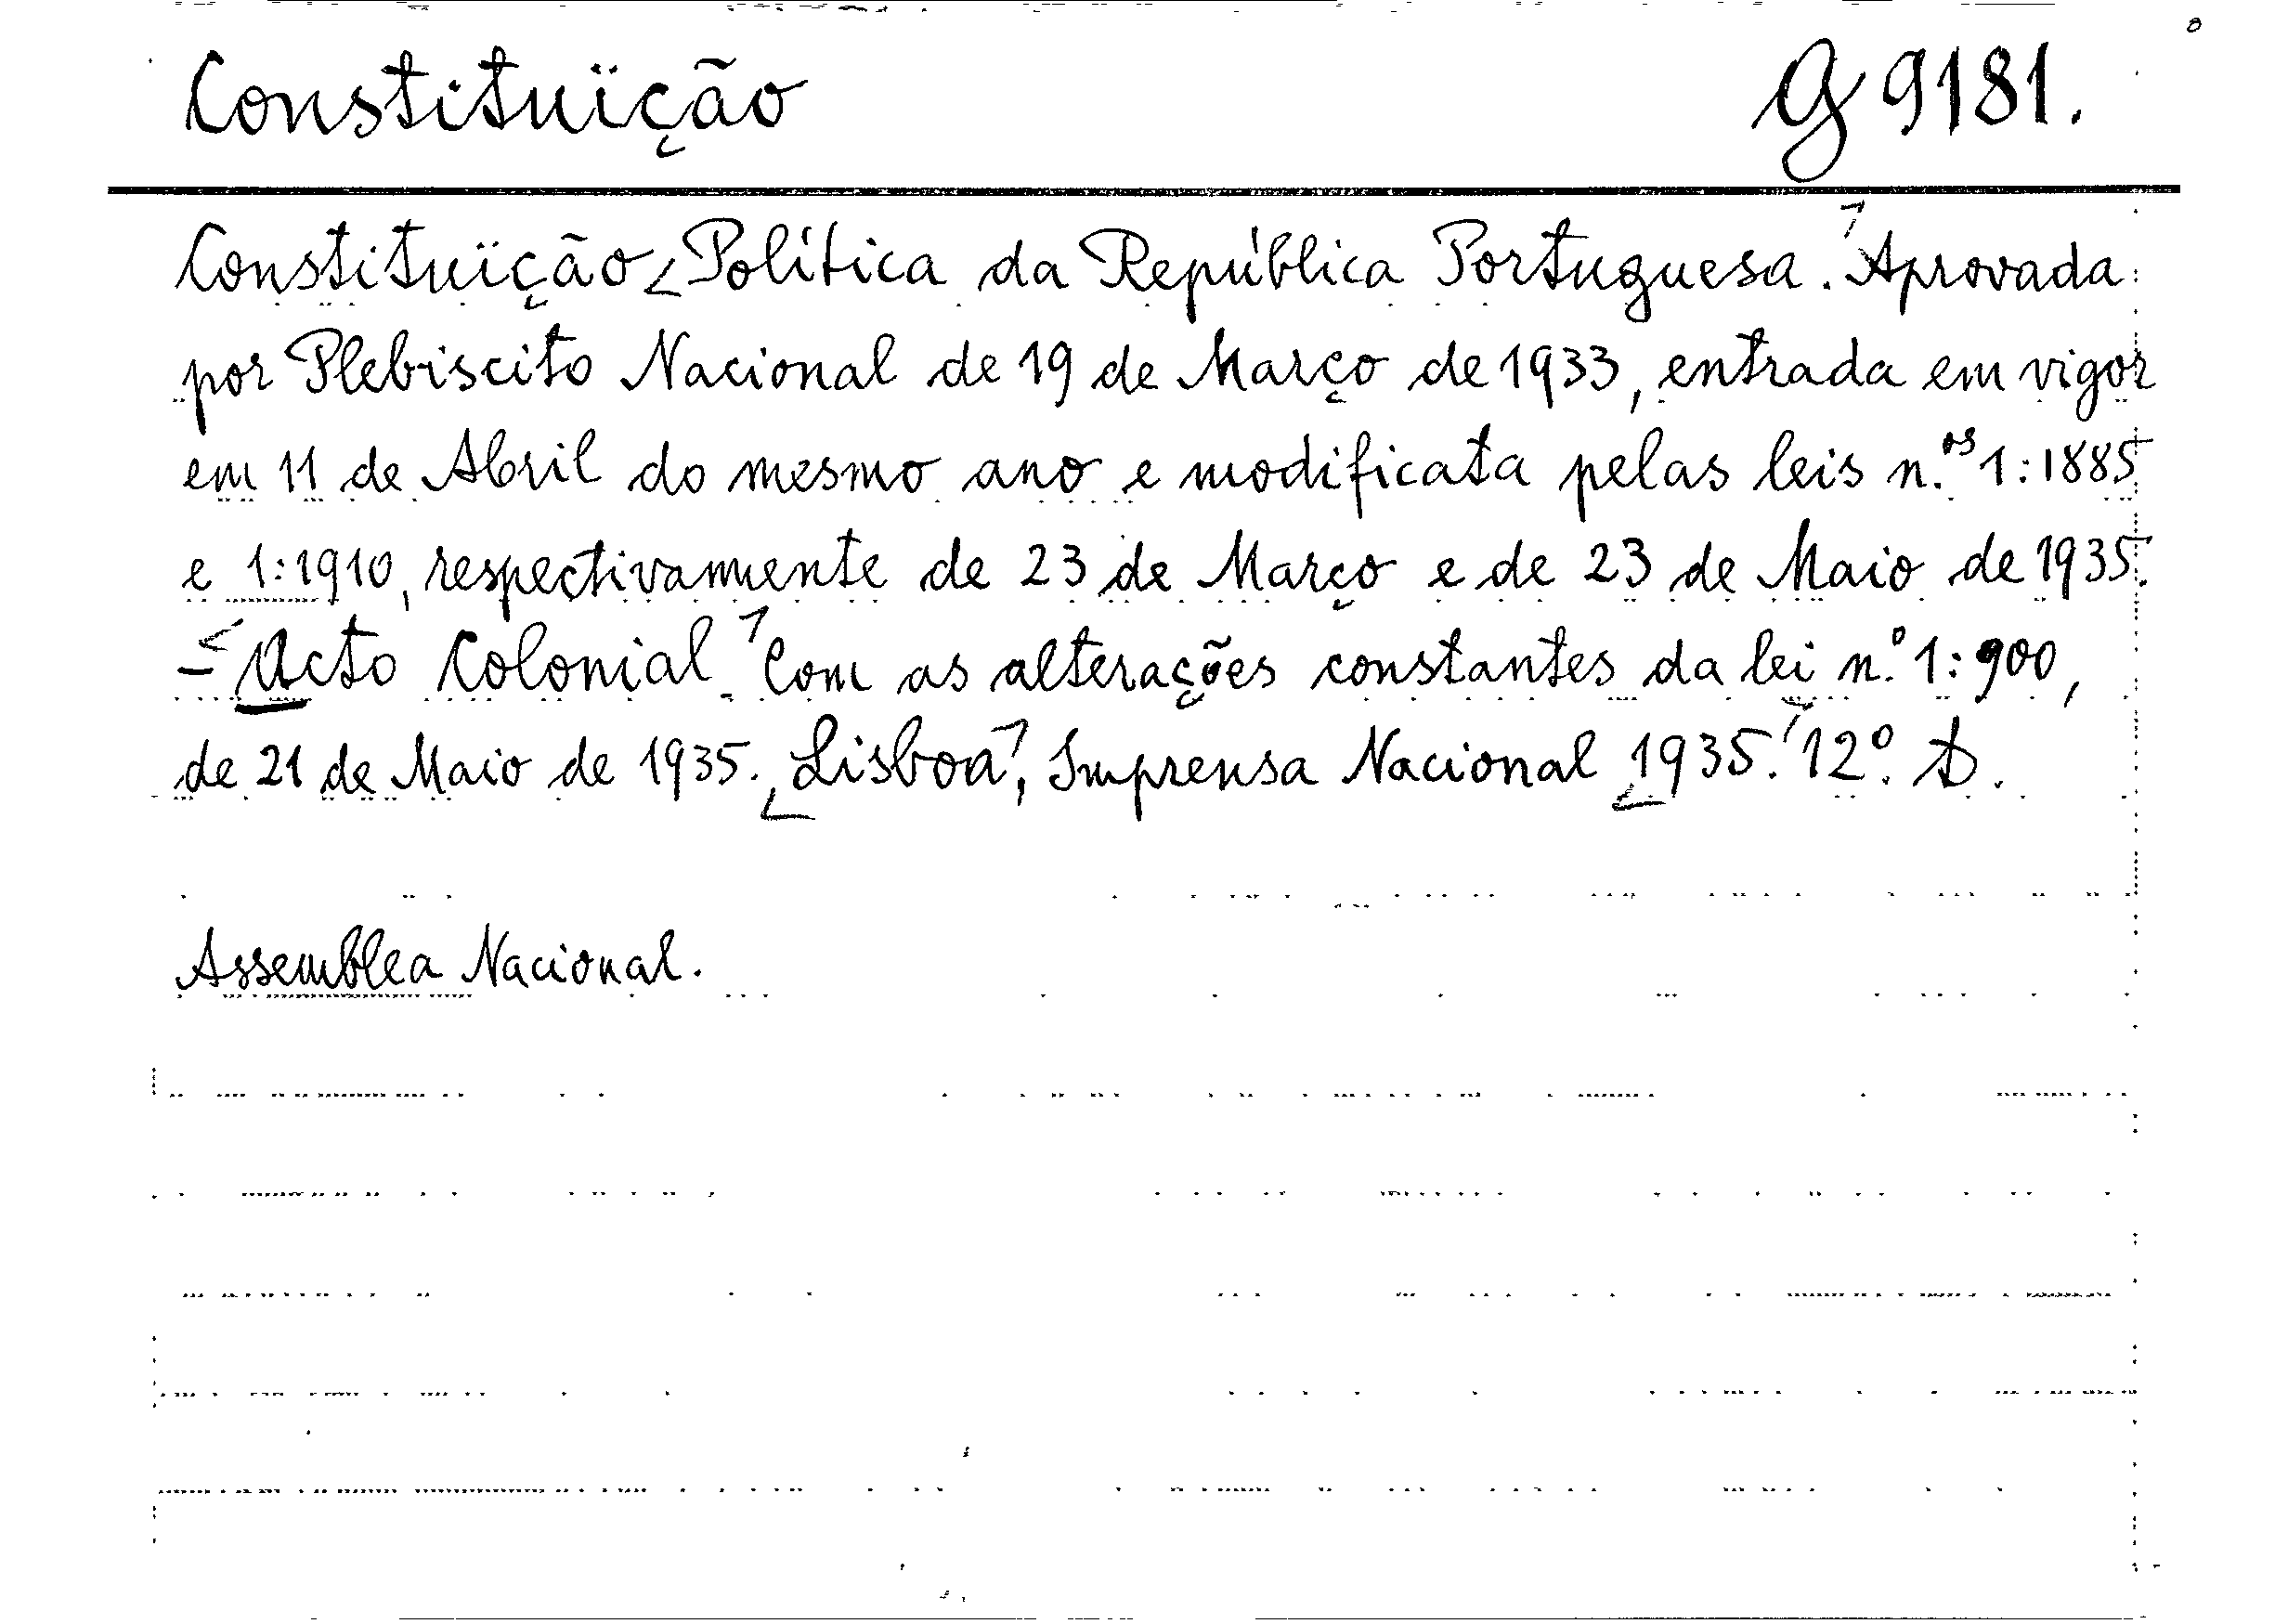 Constituïção G 9181.
Constituïção Política da República Portuguesa. Aprovada
por Plebiscito Nacional de 19 de Março de 1933, entrada em vigor
em 11 de Abril do mesmo ano e modificata pelas leis n.ºs 1:1885
e 1:1910, respectivamente de 23 de Março e de 23 de Maio de 1935.
- Acto Colonial. Com as alterações constantes da lei n.º 1:900,
de 21 de Maio de 1935. Lisboa, Imprensa Nacional 1935. 12º. D.
Assemblea Nacional.